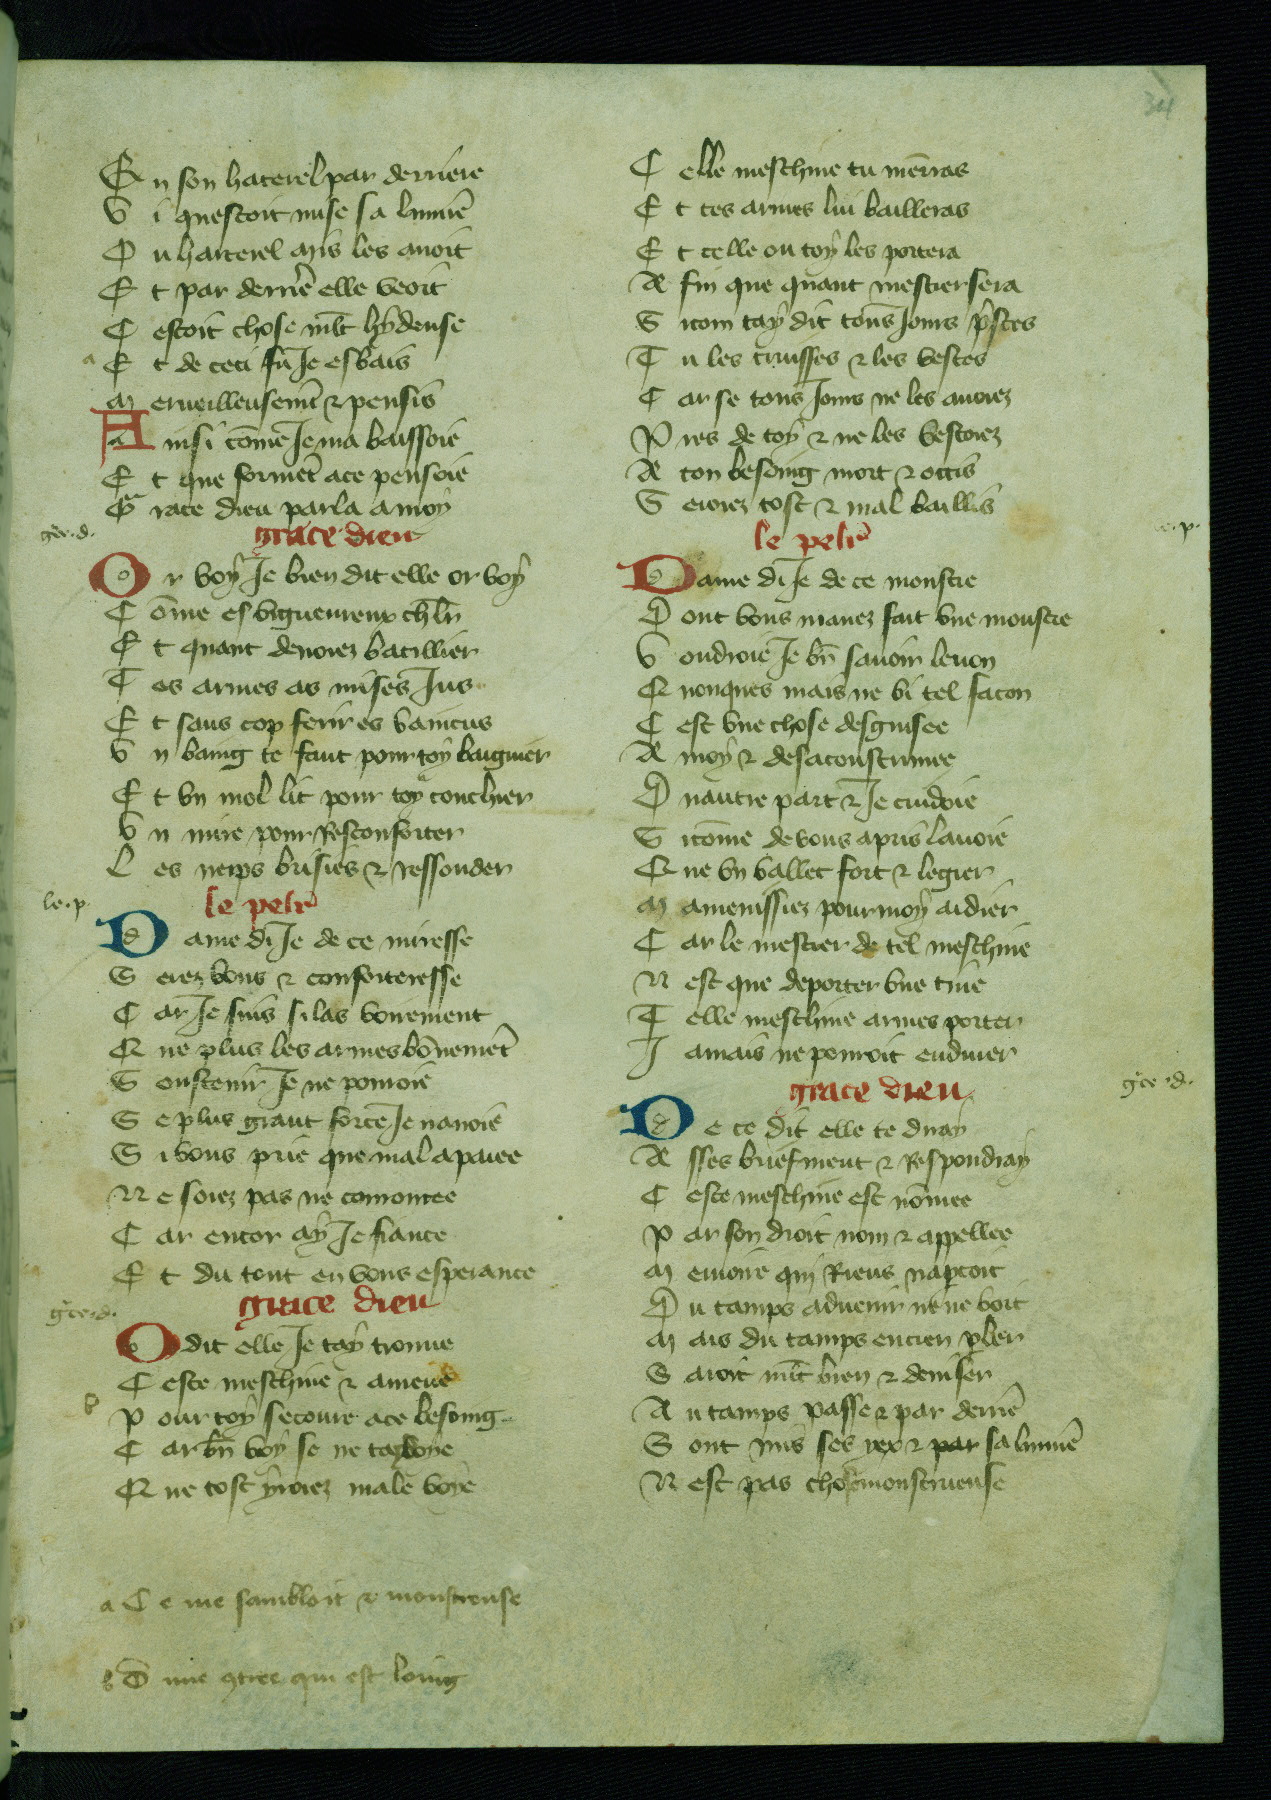 34
En son haterel par derriere
Vi questoit mise sa lumiē
Du haterel mis les avoit
Et par derriē elle veoit
Cestoit chose ml̄t hydeuse
a Et de ceci fu Je esbais
Merueilleusemēt & pensis
Ainsi cōme Je ma baissoie
Et que formēt ace pensoie
Grace dieu parla a moy
gce .d.
grace dieu
Or voy Je bien dit elle or voy
Cōme es viguereux chlr̄
Et quant deuoiez batillier
Tes armes as mises Jus
Et sans cop ferir es vaincus
Vn baing te faut pour toy baignier
Et vn mol lit pour toy couchier
Vn mire pour Resconforter
Les nerps brisies & ressouder
le .p.
le pelī
Dame di Je de ce miresse
Serez vous & conforteresse
Car Je suis si las voirement
Que plus les armes bōnemēt
Soustenir Je ne pouroie
Se plus grant force Je nauoie
Si vous prie que mal apaiee
Ne soiez pas ne coroucee
Car encor ay Je fiance
Et du tout en vous esperance
gce .d.
grace dieu
O dit elle Je tay trouue
Ceste meschine & amene
b Pour toy secourre ace besoing
Car bn̄ voy se ne taydoye
Que tost yroiez male voye
a Ce me sambloit & monstreuse
b Dune 9tree qui est loing
Celle meschine tu menras
Et tes armes lui bailleras
Et celle ou toy les portera
Afin que quant mestier sera
Si com tay dit tous Jours p̄stes
Tu les truisses & les vestes
Car se tous Jours ne les auoiez
Pres de toy & ne les vestoiez
A ton besoing mort & occis
Seroiez tost & mal baillis
le .p.
le pelī
Dame di Je de ce monstre
Dont vous mauez fait vne moustre
Voudroie Je bn̄ sauoir lenon
Quonques mais ne vi tel facon
Cest vne chose desguisee
A moy & desacoustumee
Dautre part & Je cuidoie
Si cōme de vous apris lauoie
Que vn vallet fort & legier
Mamenissiez pour moy aidier
Car le mestier de tel meschine
Nest que deporter vne tine
Telle meschine armes porter
Jamais ne pouroit endurer
gce .d.
grace dieu
De ce dit elle te diray
Asses briefment & Respondray
Ceste meschine est nōmee
Par son droit nom & appellee
Memoire qui Riens napcoit
Du tamps aduenir ne ne voit
Mais du tamps encien pler
Saroit ml̄t bien & deuiser
Au tamps passe & par derriē
Sont mis ses yex & par sa lumiē
Nest pas chose monstrueuse